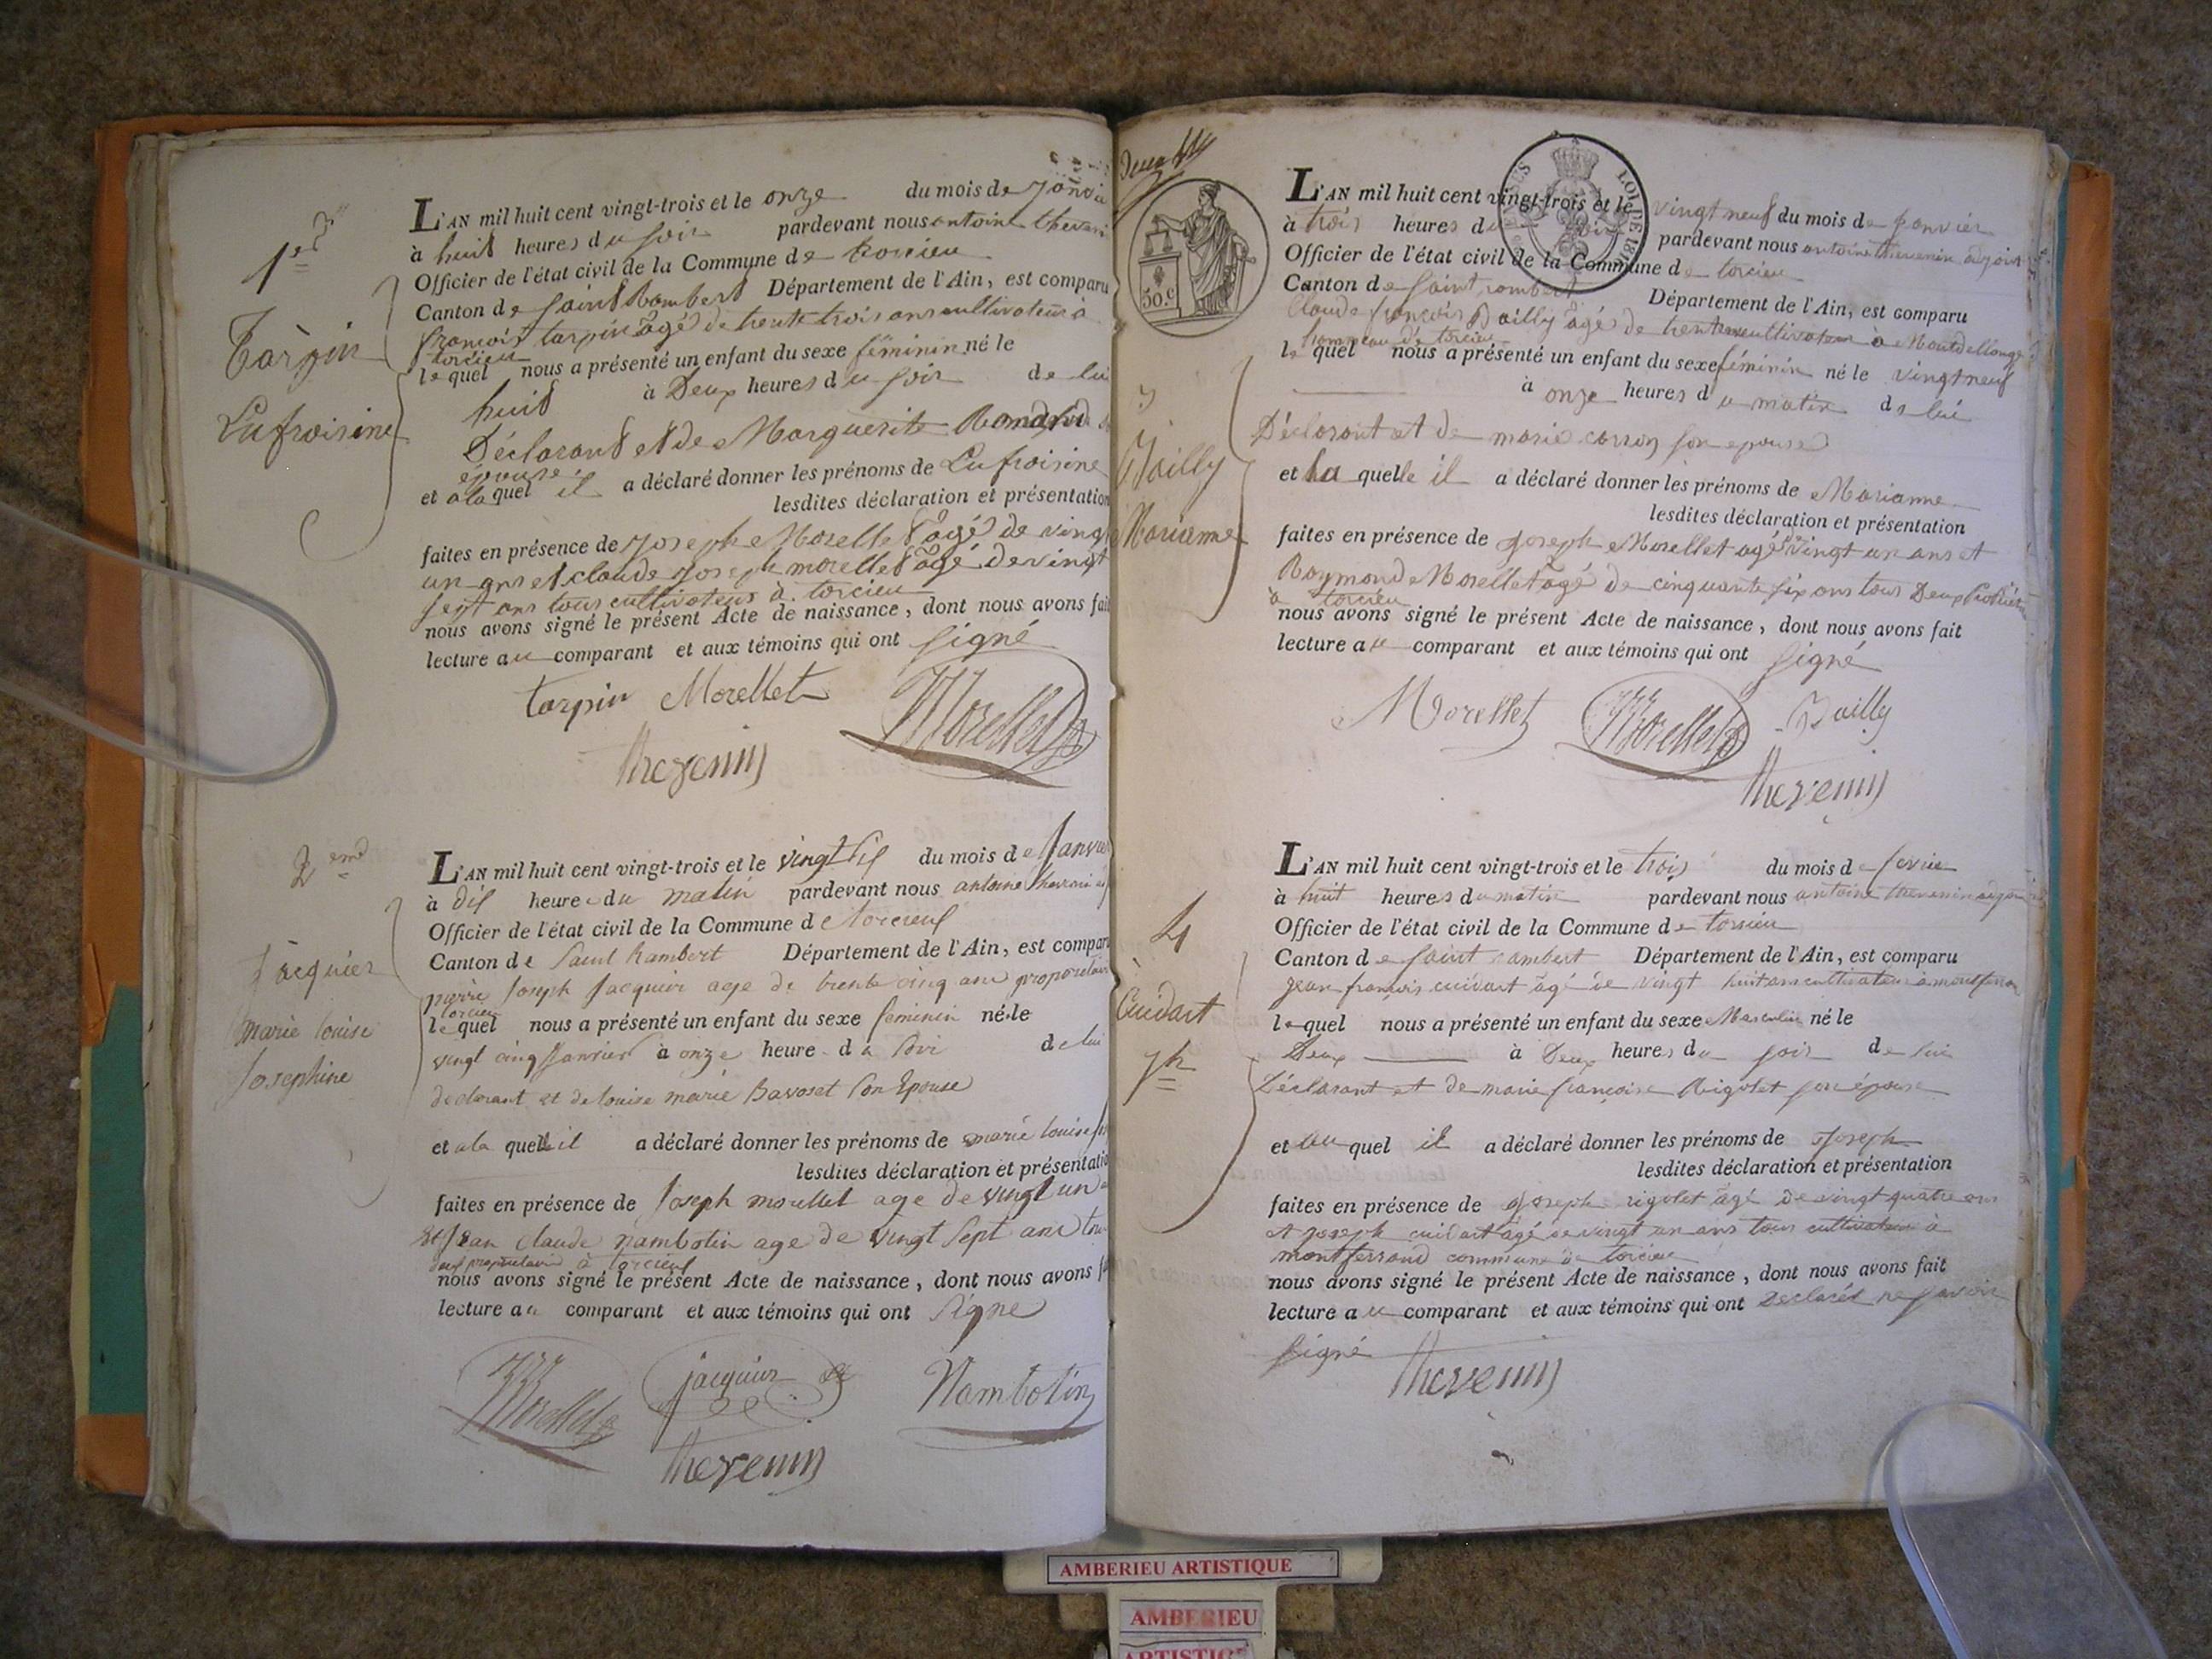 1er
Tarpin
Lufroisine
L'AN mil huit cent vingt-trois et le onze du mois de
à huit heures du soir pardevant nous antoine
Officier de l'état civil de la Commune de torcieu
Canton de saint Rambert Département de l'Ain, est comparu
françois tarpin âgé de trente trois ans cultivateur à
torcieu
lequel nous a présenté un enfant du sexe féminin né le
huit à Deux heures du soir de lui
Déclarant et de Marguerite
épouse
et a laquel il a déclaré donner les prénoms de Lufroisine
lesdites déclaration et présentation
faites en présence de Joseph Morellet âgé de vingt
un ans et claude Joseph morellet âgé de vingt
sept ans tous cultivateurs à torcieu
nous avons signé le présent Acte de naissance, dont nous avons fait
lecture au comparant et aux témoins qui ont signé
tarpin Morellet Morellet
thevenin
2eme
Jacquier
marie louise
Josephine
L'AN mil huit cent vingt-trois et le vingt sis du mois de Janvier
à dis heure du matin pardevant nous antoine
Officier de l'état civil de la Commune de torcieux
Canton de Saint Rambert Département de l'Ain, est comparu
pierre Joseph Jacquier age de trente cinq ans propriétaire
torcieu
lequel nous a présenté un enfant du sexe feminin né le
vingt cinq Janvier à onze heure du soir de lui
declarant et de louise marie Bavoset son Epouse
et a la quelle il a déclaré donner les prénoms de marie louise
lesdites déclaration et présentation
faites en présence de Joseph morellet age de vingt un
et Jean claude nambotin age de vingt sept ans tous
deux propriétaires à torcieux
nous avons signé le présent Acte de naissance, dont nous avons
lecture au comparant et aux témoins qui ont signe
Morellet jacquier Nambotin
thevenin
30.C
LOI DE
3
Bailly
Marianne
L'AN mil huit cent vingt-trois et le vingt neuf du mois de janvier
à trois heures du soir pardevant nous antoine thevenin adjoint
Officier de l'état civil de la Commune de torcieu
Canton de saint rambert Département de l'Ain, est comparu
Claude françois Bailly âgé de trente cultivateur à Montdellange
hammeau de torcieu
lequel nous a présenté un enfant du sexe féminin né le vingt neuf
à onze heures du matin de lui
Déclarant et de marie carron son epouse
et la quelle il a déclaré donner les prénoms de Marianne
lesdites déclaration et présentation
faites en présence de Joseph Morellet agé vingt un ans et
Raymond Morellet âgé de cinquante six ans tous Deux
à torcieu
nous avons signé le présent Acte de naissance, dont nous avons fait
lecture au comparant et aux témoins qui ont signé
Morellet Morellet Bailly
thevenin
4
Cuidart
Jh
L'AN mil huit cent vingt-trois et le trois du mois de fevrie
à huit heures du matin pardevant nous antoine thevenin adjoint
Officier de l'état civil de la Commune de torcieu
Canton de saint rambert Département de l'Ain, est comparu
Jean françois cuidart âgé de vingt huit ans cultivateur à
lequel nous a présenté un enfant du sexe Masculin né le
Deux à Deux heures du soir de lui
Déclarant et de marie françoise Rigolet son épouse
et au quel il a déclaré donner les prénoms de Joseph
lesdites déclaration et présentation
faites en présence de Joseph rigolet âgé de vingt quatre ans
et Joseph cuidart âgé de vingt un ans tous cultivateurs à
montferrand commune de torcieu
nous avons signé le présent Acte de naissance, dont nous avons fait
lecture au comparant et aux témoins qui ont Déclarés ne savoir
signé
thevenin
AMBERIEU ARTISTIQUE
AMBERIEU
ARTISTIQUE